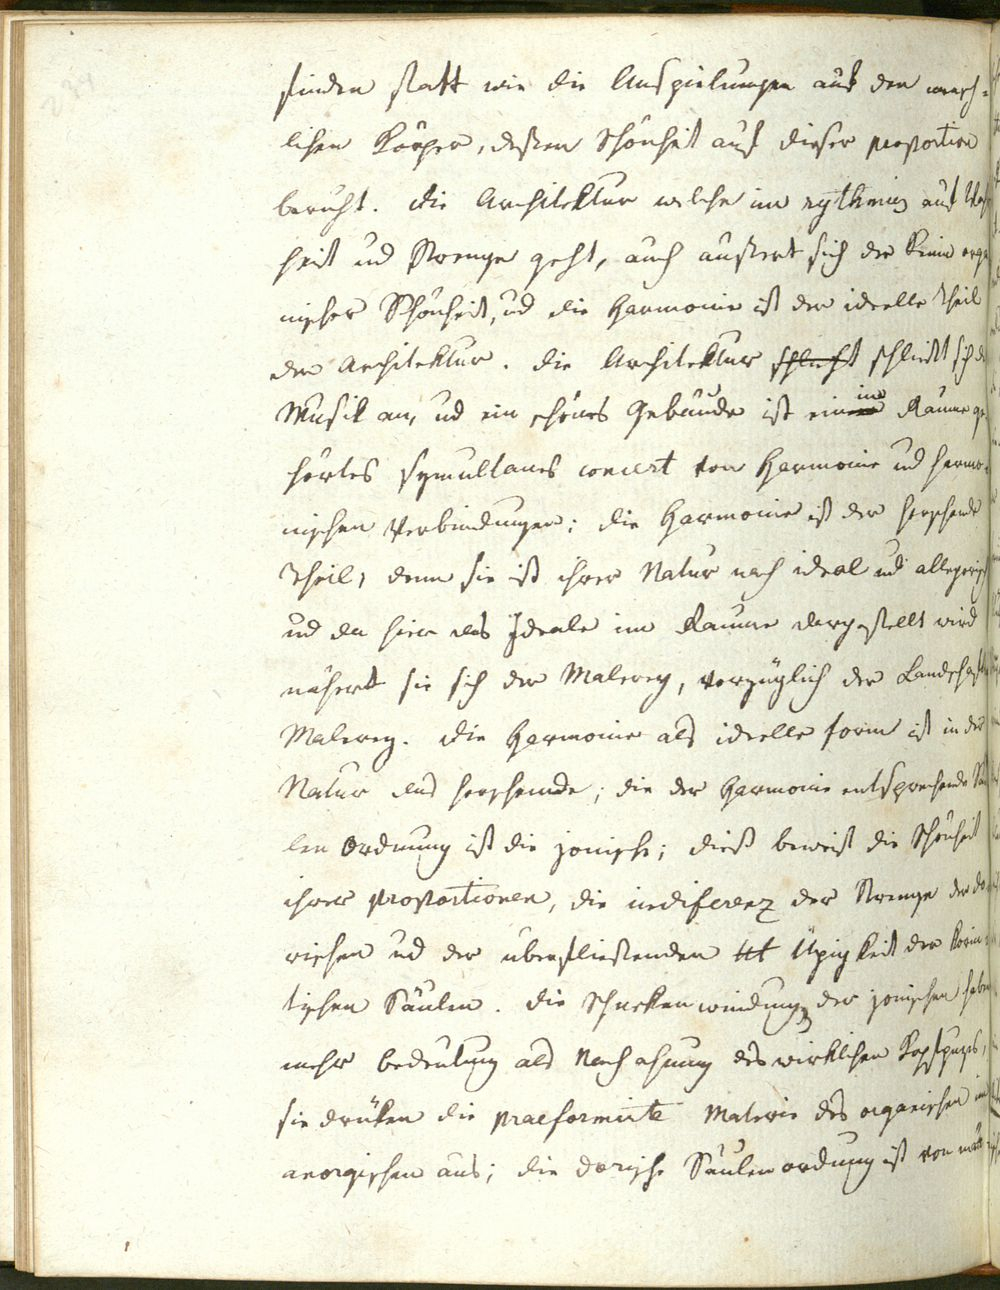 finden statt wie die Anspielungen auf den mensch-
lichen Körper, dessen Schönheit auf dieser proportion
beruht. die Architektur welche im rythmus auf
heit und Strenge geht, auch äussert sich der Keim orga
nischer Schönheit, ud die Harmonie ist der ideelle Theil
der Architektur. die Architektur schliest schließt sich d
Musik an, ud ein schönes Gebäude ist ein im Raume ge
hörtes symultanes concert von Harmonie ud harmo-
nischen Verbindungen; die Harmonie ist der herschende
Theil, denn sie ist ihrer Natur nach ideal ud allegorisch
ud da hier das Ideale im Raume dargestellt wird
nähert sie sich der Malerey, vorzüglich der Landschaft
Malerey. die Harmonie als ideelle form ist in der
Natur das herschende; die der Harmonie entsprechende Säu
len Ordnung ist die jonische; dieß beweist die Schönheit
ihrer proportionen, die indiferenz der Strenge der do
rischen ud der überfliessenden Üpigkeit der korin-
tischen Säulen. die Schneckenwindung der jonischen haben
mehr bedeutung als Nachahmung des wirklichen Kopfpuzes,
sie drüken die praeformirte Materie des organischen im
anorgischen aus; die dorische Säulenordnung ist von